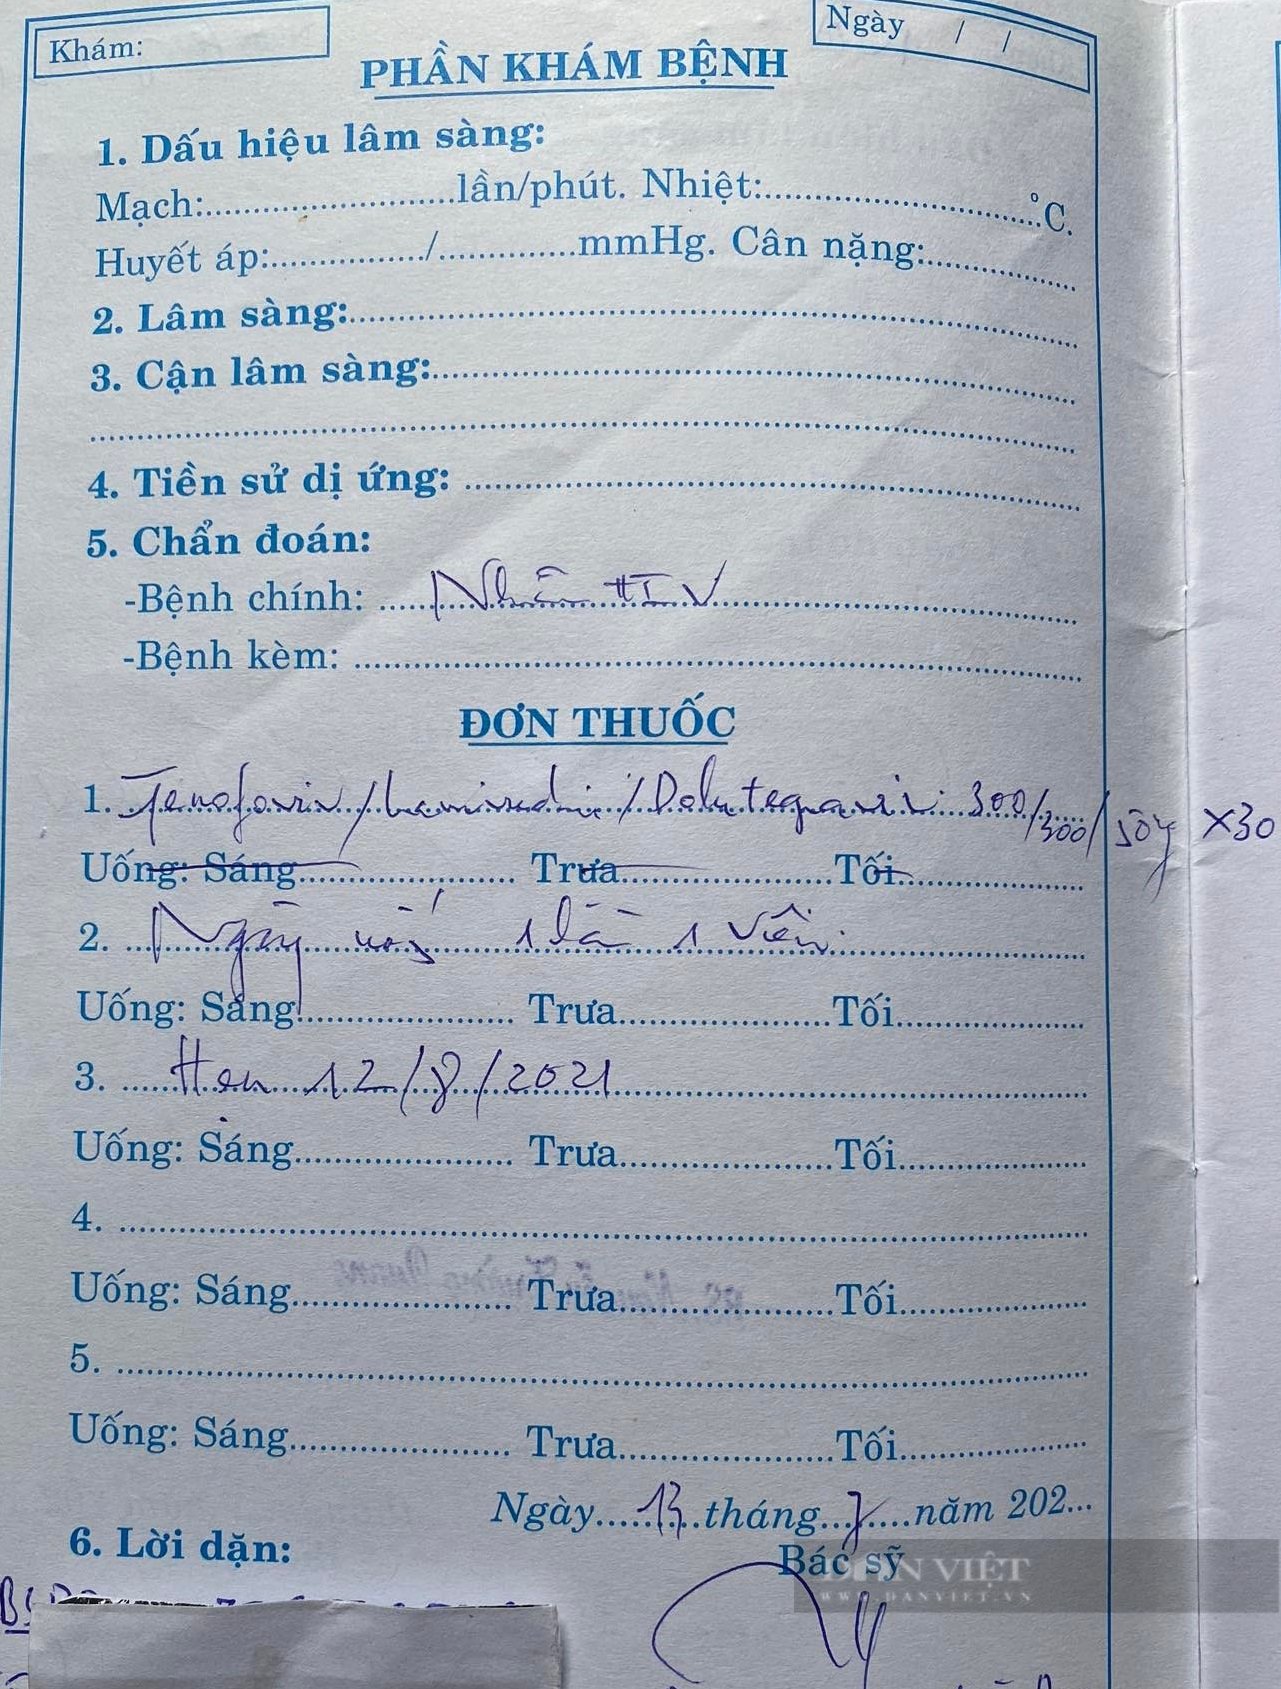 Khám:
Ngày / /
PHẦN KHÁM BỆNH
1. Dấu hiệu lâm sàng:
Mạch:..........................lần/phút. Nhiệt:..............................°C.
Huyết áp:................/..............mmHg. Cân nặng:................
2. Lâm sàng:..........................................................................
3. Cận lâm sàng:..................................................................
....................................................................................................
4. Tiền sử dị ứng: ..............................................................
5. Chẩn đoán:
-Bệnh chính: ......Nhiễm HIV......................................
-Bệnh kèm: ..........................................................................
ĐƠN THUỐC
1. Tenofovir/Lamivudin/Dolutegravir 300/300/50mg x30
Uống: Sáng...................... Trưa......................Tối...................
2. ...Ngày uống 1 lần 1 viên..............................
Uống: Sáng...................... Trưa......................Tối...................
3. ......Hẹn 12/8/2021................................................
Uống: Sáng...................... Trưa......................Tối...................
4. ..................................................................................................
Uống: Sáng...................... Trưa......................Tối...................
5. ..................................................................................................
Uống: Sáng...................... Trưa......................Tối...................
Ngày......13..tháng...7.....năm 202...
6. Lời dặn:
Bác sỹ
DÂN VIỆT
WWW.DANVIET.VN